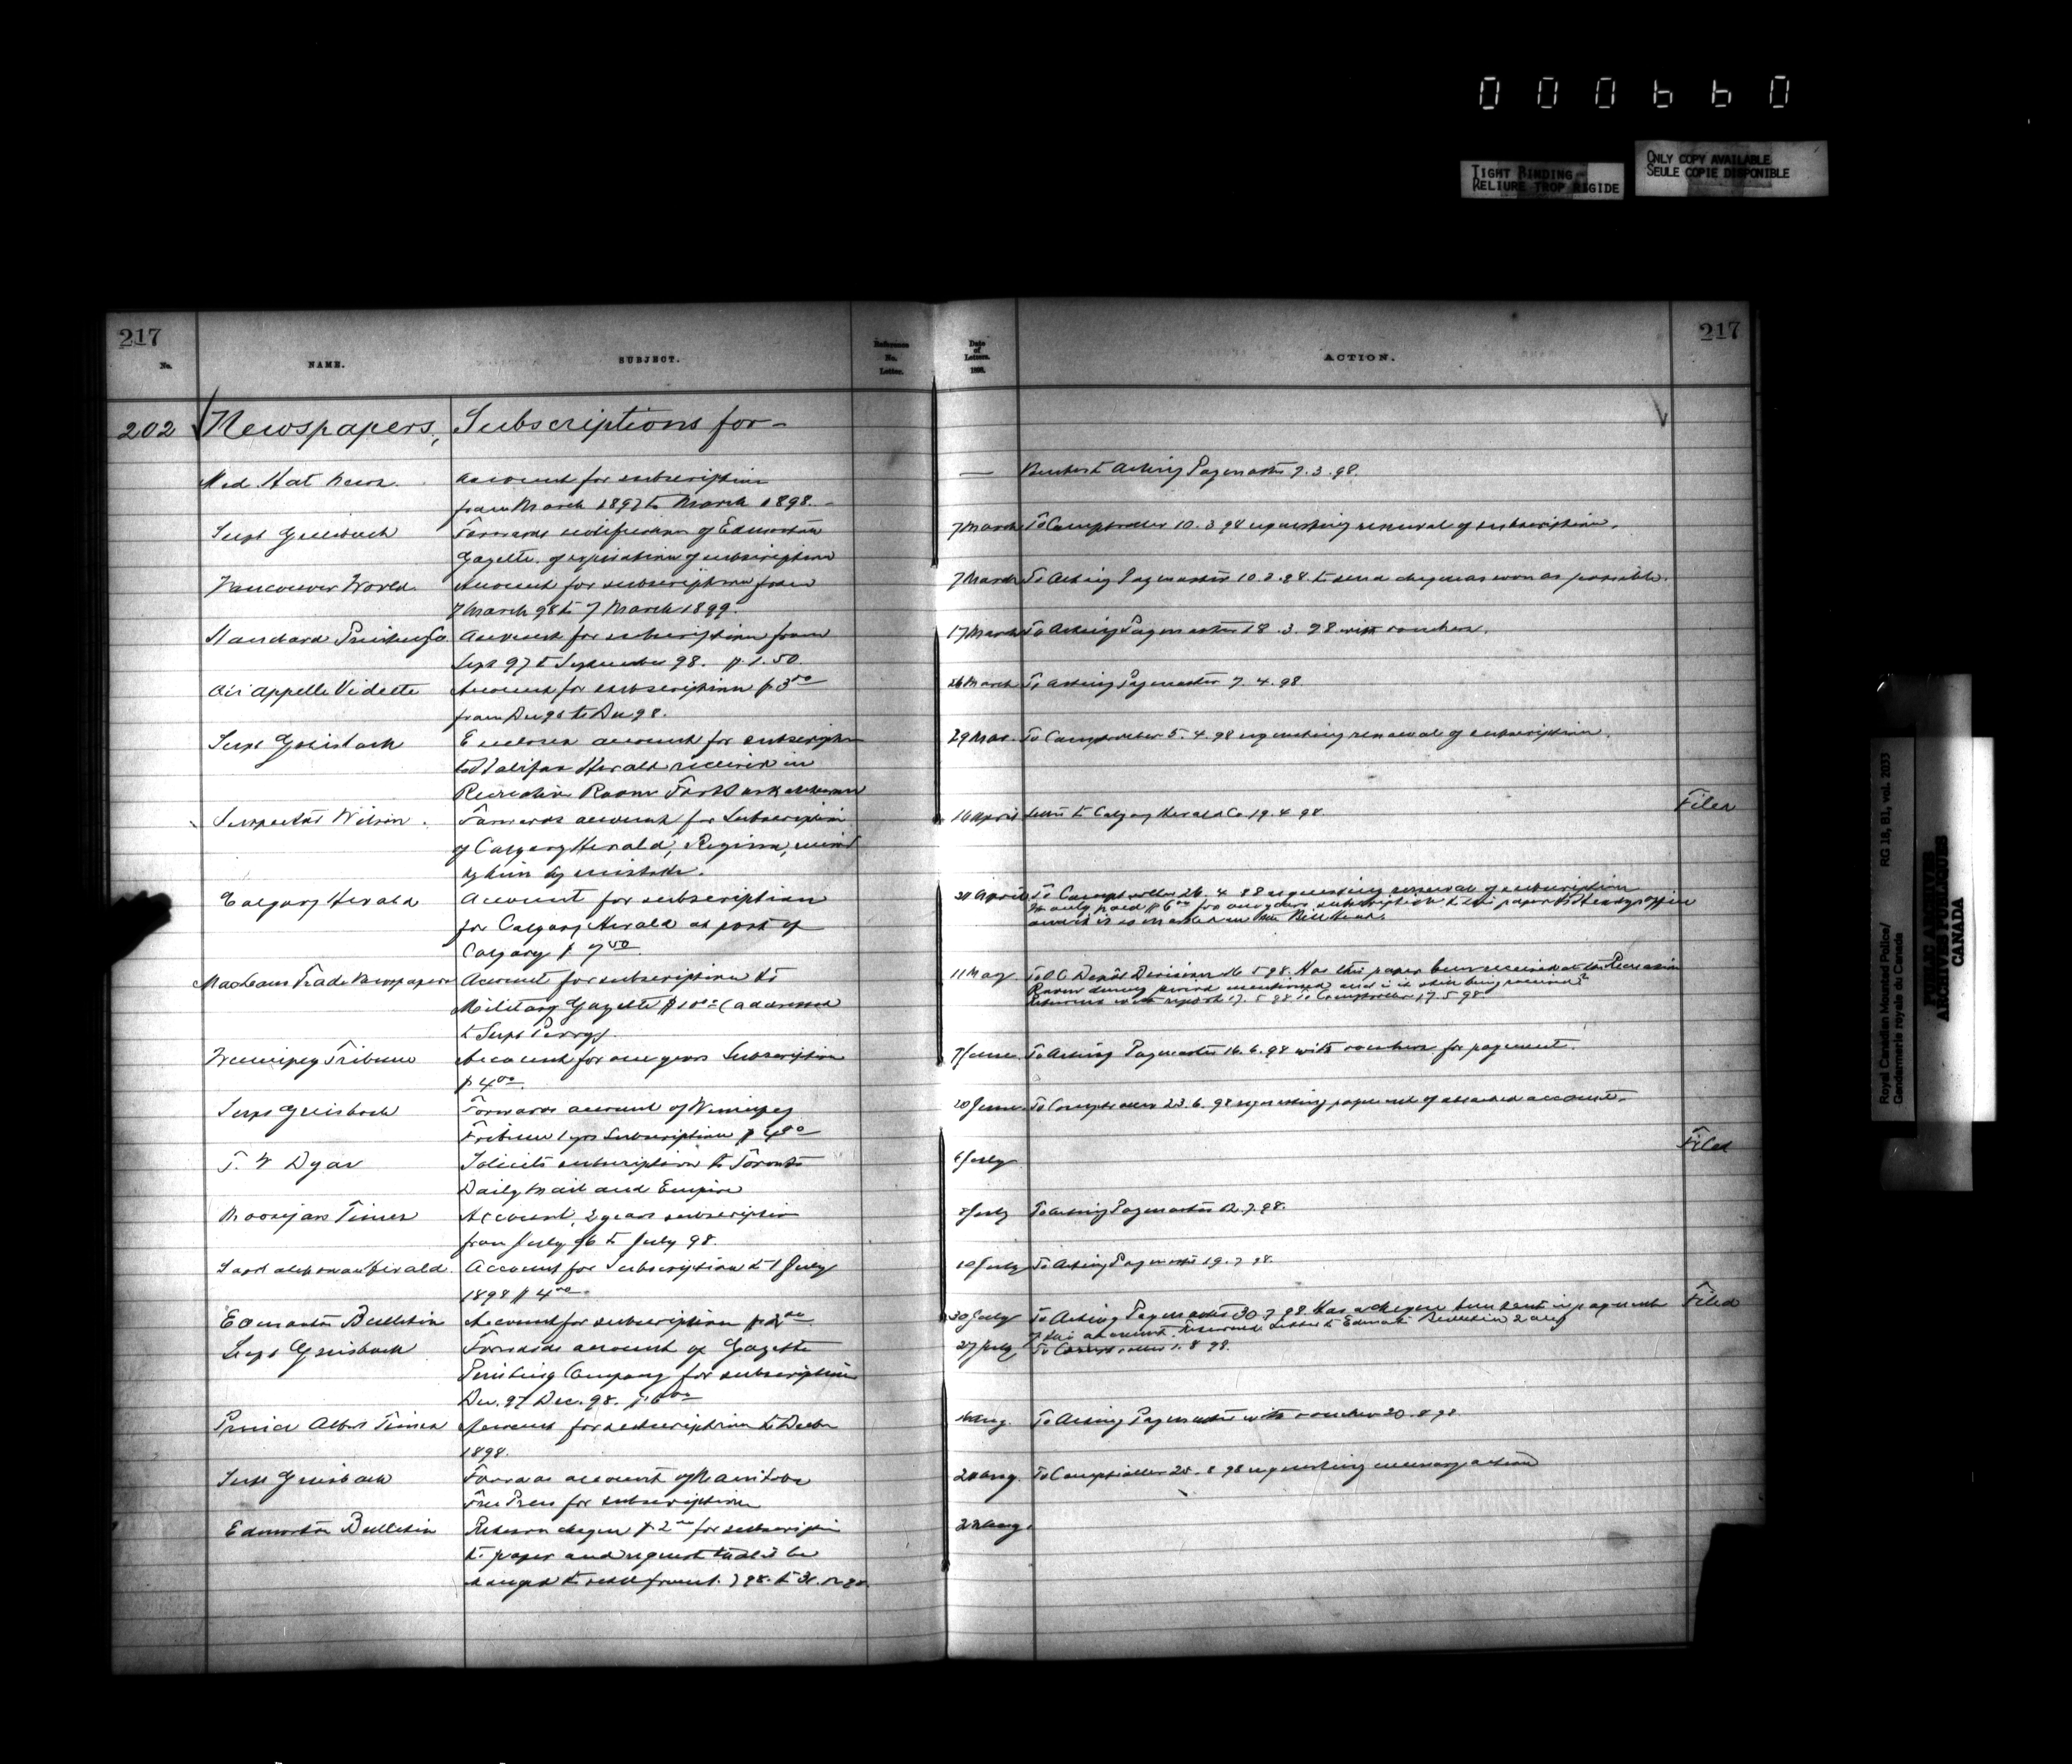 000660
TIGHT BINDING
RELIURE TROP RIGIDE
ONLY COPY AVAILABLE
SEULE COPIE DISPONIBLE
217
No.
NAME.
SUBJECT.
Reference No. Letter.
Date of Letters. 1898.
ACTION.
217
202 Newspapers, Subscriptions for-
Med. Hat News. Account for subscription — Acting Paymaster 7.3.98.
from March 1897 to March 1898.-
Supt Griesbach Forwards notification of Edmonton 7 March To Comptroller 10.3.98 requesting renewal of subscription.
Gazette of expiration of subscription
Vancouver World Account for subscription from 7 March To Acting Paymaster 10.3.98 to send cheque as soon as possible.
7 March 98 to 7 March 1899.
Standard Printing Co Account for subscription from 17 March To Acting Paymaster 18.3.98 with voucher.
Sept 97 to September 98. $1.50.
Qu'Appelle Vidette Account for subscription $3 00 26 March To Acting Paymaster 7.4.98
from Dec 96 to Dec 98.
Supt Griesbach Encloses account for subscription 29 Mar. To Comptroller 5.4.98 requesting renewal of subscription.
to Halifax Herald received in
Recreation Room Fort Saskatchewan
Inspector Wilson. Forwards account for Subscription 16 April Letter to Calgary Herald Co 19.4.98 Filed
of Calgary Herald, Regina,
by him by mistake.
Calgary Herald Account for subscription April To Comptroller 26.4.98 requesting renewal of subscription
for Calgary Herald at post of We only paid $6 00 for one years subscription to this paper
Calgary $ 7 50
MacLeans Trade Newspapers Account for subscription to 11 May To O.C. Depot Division 16.5.98. Has this paper been received at the Recreation
Military Gazette (addressed Room during period mentioned and is it still being received?
to Supt Perry) Returned with report 17.5.98 To Comptroller 17.5.98
Winnipeg Tribune Account for one years Subscription 7 June To Acting Paymaster 16.6.98 with vouchers for payment.
$4 00.
Supt Griesbach Forwards account of Winnipeg 20 June To Comptroller 23.6.98 requesting payment of attached account.
Tribune 1 yrs Subscription $4 00
T. W Dyas Solicits subscription to Toronto 6 July Filed
Daily Mail and Empire
Moosejaw Times Account, 2 years subscription July To Acting Paymaster 12.7.98.
from July 96 to July 98.
Saskatchewan Herald. Account for Subscription to 1 July July To Acting Paymaster 19.7.98.
1898 $4 00.
Edmonton Bulletin Account for subscription $2 00. 30 July To Acting Paymaster 30.7.98. Has a cheque been sent in payment Filed
of this account. Returned. Letter to Edmonton Bulletin 2 Aug
Supt Griesbach Forwards account of Gazette 27 July To Comptroller 1.8.98.
Printing Company for subscription
Dec. 97 Dec. 98. $6 00
Prince Albert Times Account for subscription to Decbr Aug. To Acting Paymaster with voucher 20.8.98
1898.
Supt Griesbach Forwards account of Manitoba Aug. To Comptroller 8 98 requesting necessary action
Free Press for subscription
Edmonton Bulletin Returns cheque $2 00 for subscription Aug.
to paper and request that it be
changed to
Royal Canadian Mounted Police/ RG 18, B1, vol. 2033
Gendarmerie royale du Canada
PUBLIC ARCHIVES
ARCHIVES PUBLIQUES
CANADA